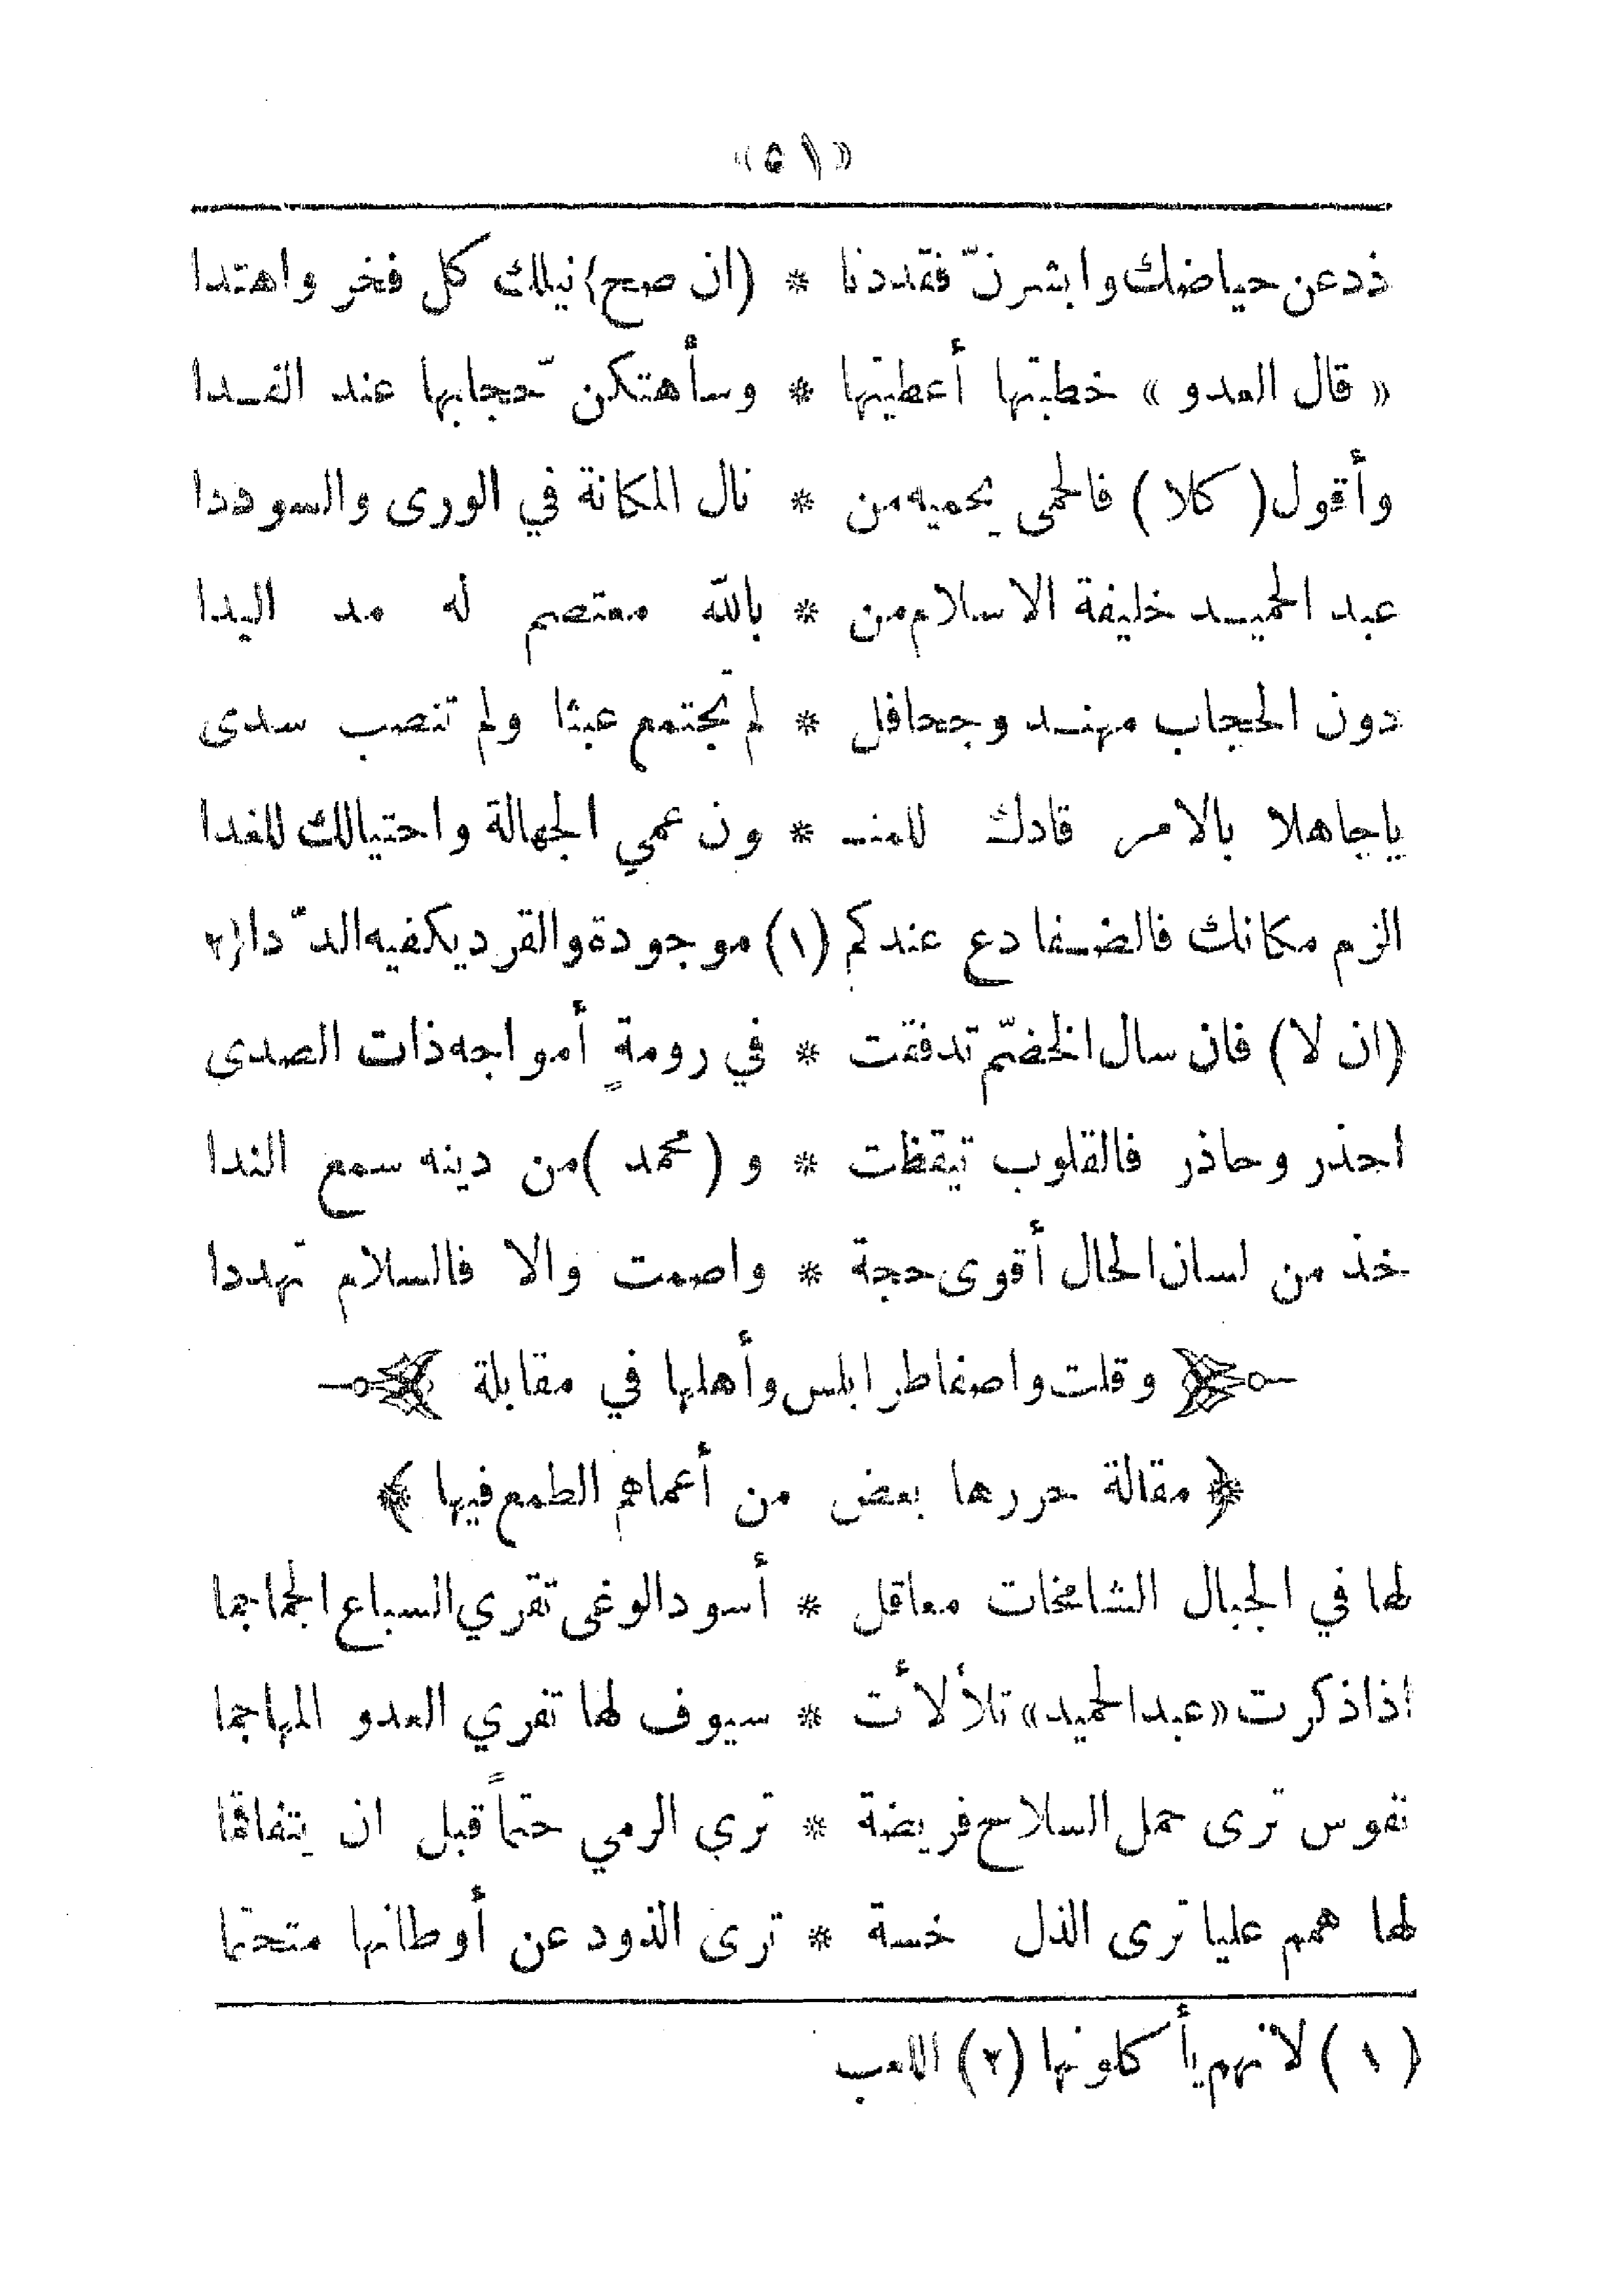 «٥١»
ذد عن حياضك وابشرنّ فقد دنا * (ان صح) نيلك كل فخر واهتدا
« قال العدو » خطبتها أعطيتها * وسأهتكن ّحجابها عند الغـدا
وأقول ( كلا ) فالحمى يحميه من * نال المكانة في الورى والسوددا
عبد الحميـد خليفة الاسلام من * بالله معتصم له مد اليدا
دون الحجاب مهنـد وجحافل * لم تجتمع عبثا ولم تنصب سدى
ياجاهلا بالامر قادك للمنـ * ون عمي الجهالة واحتيالك للغدا
الزم مكانك فالضـفادع عندكم (١) موجودة والقرد يكفيه الد ّدا (٢
(ان لا) فان سال الخضمّ تدفقت * في رومةٍ أمواجه ذات الصدى
احذر وحاذر فالقلوب تيقظت * و ( محمد ) من دينه سمع الندا
خذ من لسان الحال أقوى حجة * واصمت والا فالسلام تهددا
وقلت واصفا طرابلس وأهلها في مقابلة
﴿ مقالة حررها بعض من أعماهم الطمع فيها ﴾
لها في الجبال الشامخات معاقل * أسود الوغى تقري السباع الجماجما
اذا ذكرت «عبد الحميد» تلألأت * سيوف لها تفري العدو المهاجما
نفوس ترى حمل السلاح فريضة * ترى الرمي حتماً قبل ان يتفاقما
لها همم عليا ترى الذل خسة * ترى الذود عن أوطانها متحتما
( ١ ) لانهم يأكلونها (٢) اللعب